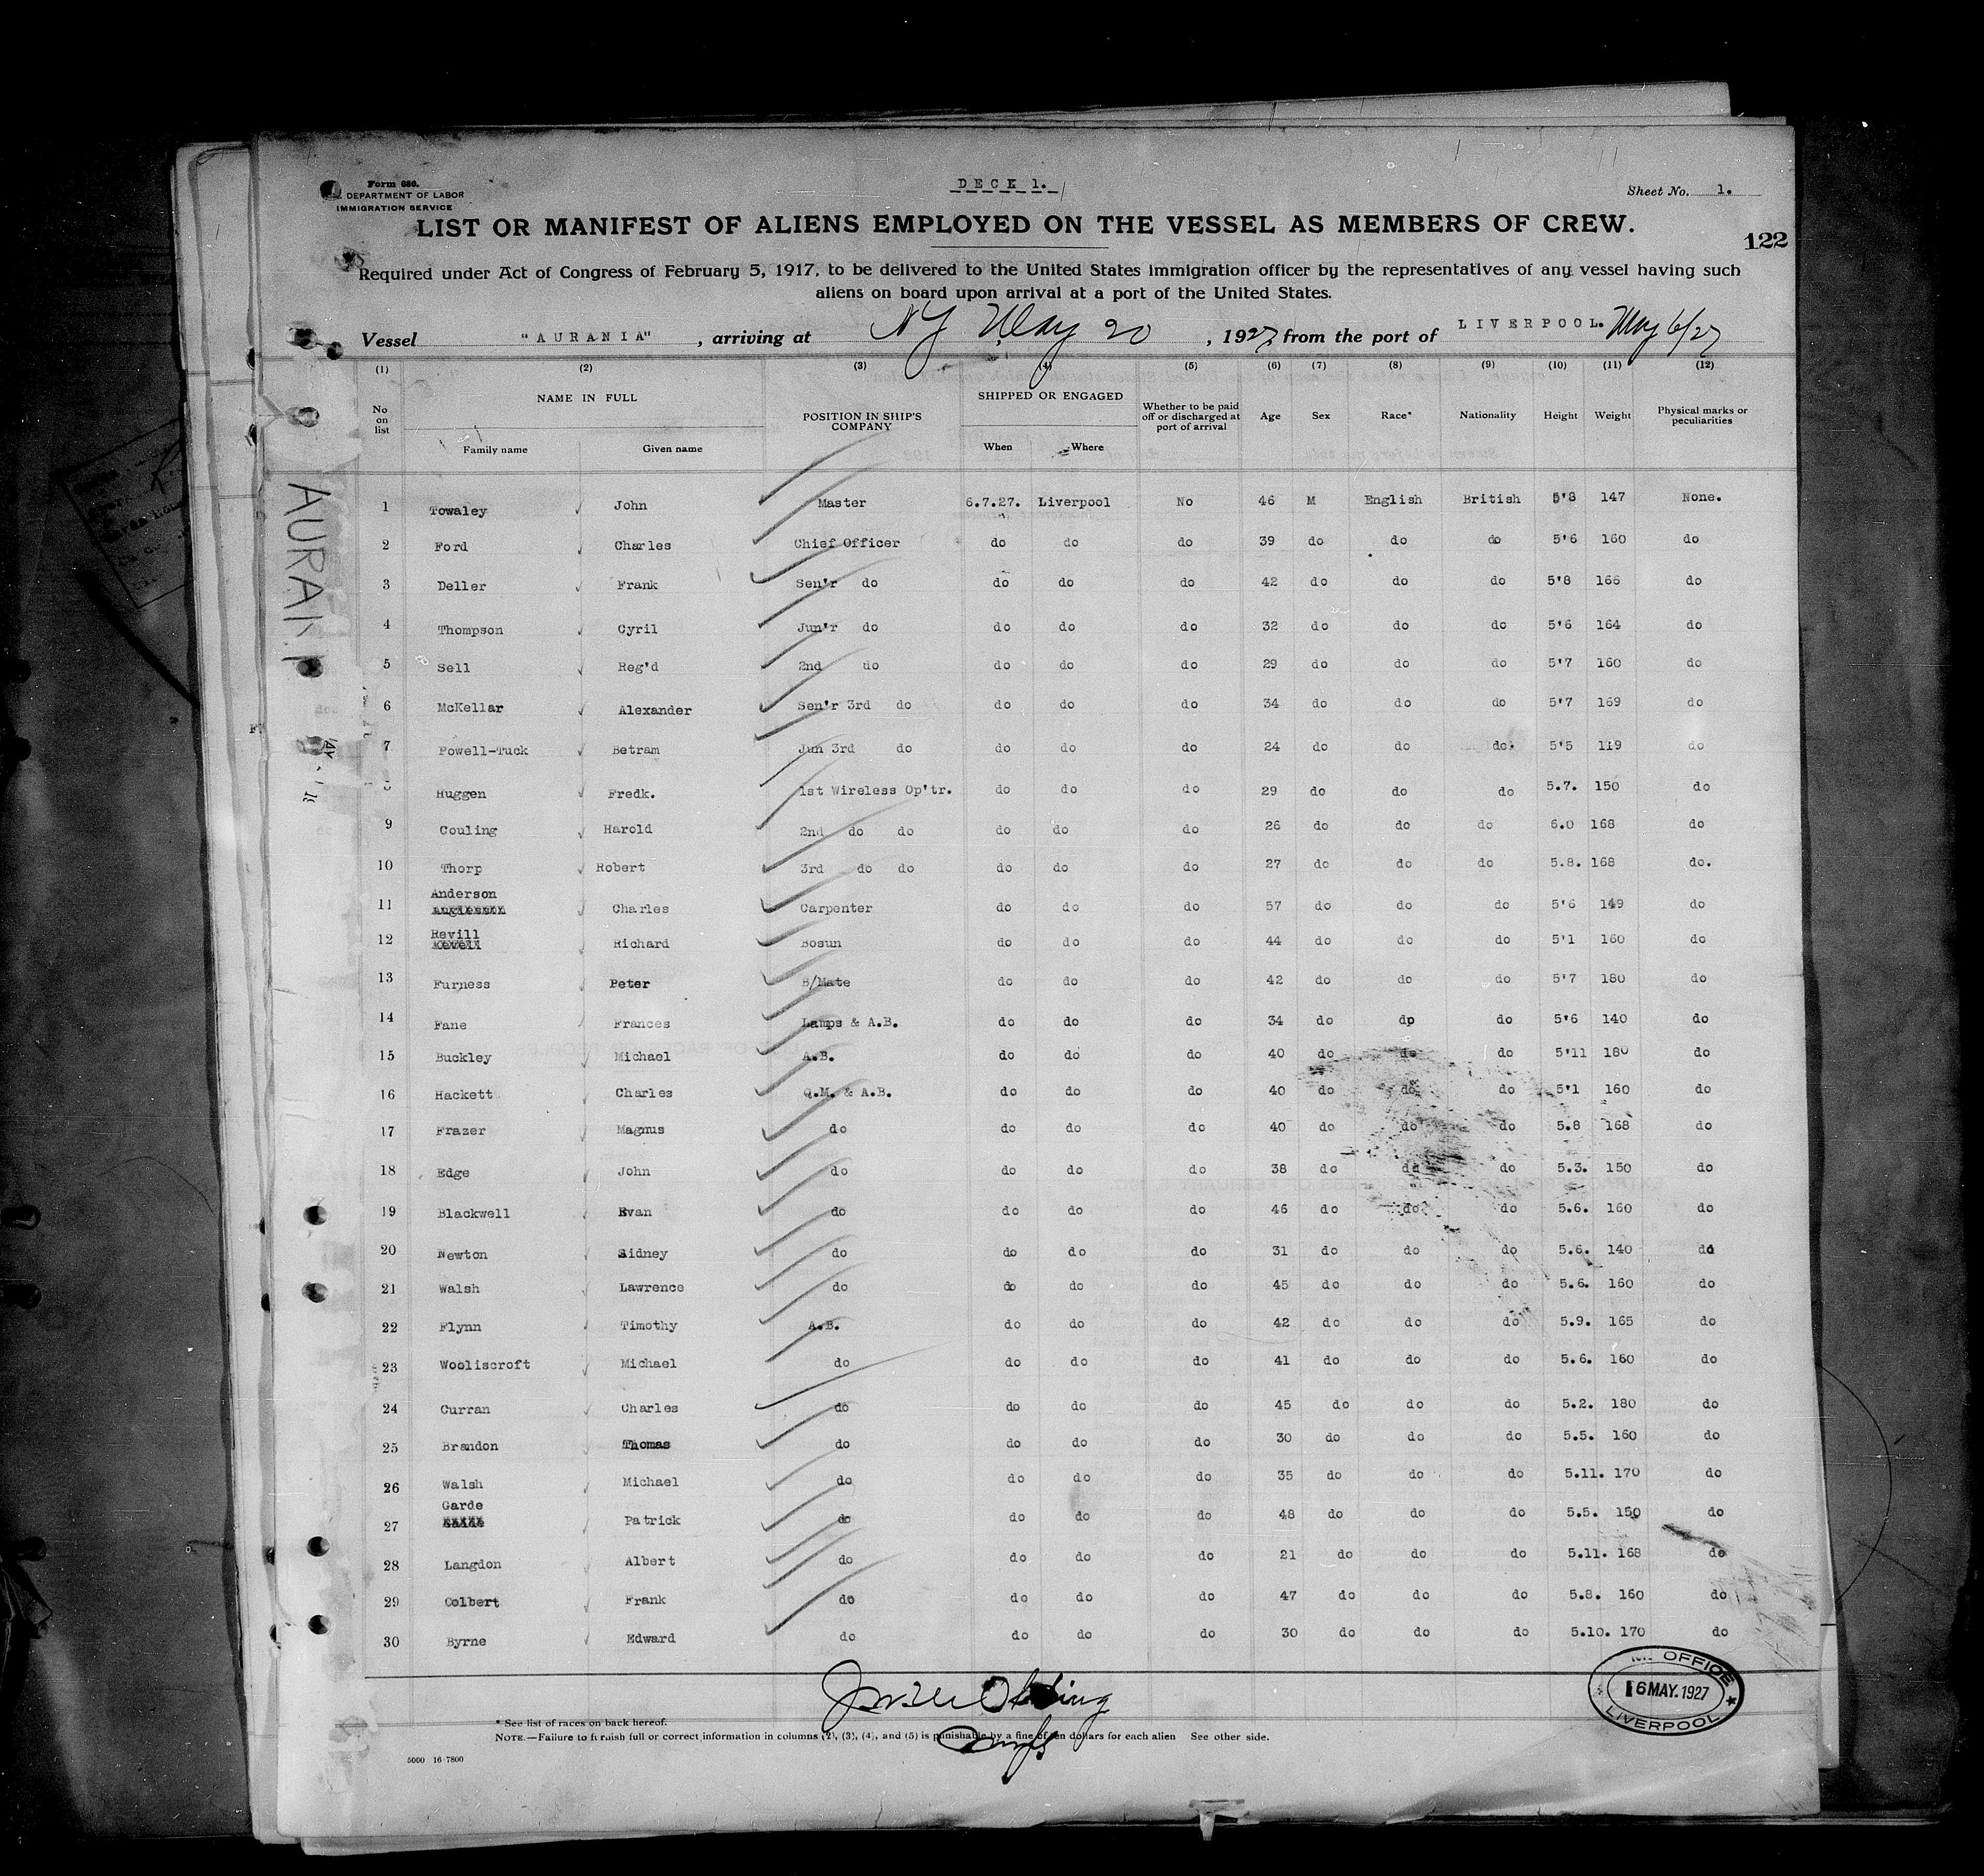 Form 680.
DEPARTMENT OF LABOR
IMMIGRATION SERVICE
DECK 1.
Sheet No. 1.
LIST OR MANIFEST OF ALIENS EMPLOYED ON THE VESSEL AS MEMBERS OF CREW.
122
Required under Act of Congress of February 5, 1917, to be delivered to the United States immigration officer by the representatives of any vessel having such
aliens on board upon arrival at a port of the United States.
Vessel "AURANIA", arriving at NY May 20, 1927, from the port of LIVERPOOL. May 6/27
(1) (2) (3) (4) (5) (6) (7) (8) (9) (10) (11) (12)
No on list NAME IN FULL Family name Given name POSITION IN SHIP'S COMPANY SHIPPED OR ENGAGED When Where Whether to be paid off or discharged at port of arrival Age Sex Race* Nationality Height Weight Physical marks or peculiarities
1 Towaley John Master 6.7.27. Liverpool No 46 M English British 5'8 147 None.
2 Ford Charles Chief Officer do do do 39 do do do 5'6 160 do
3 Deller Frank Sen'r do do do do 42 do do do 5'8 166 do
4 Thompson Cyril Jun'r do do do do 32 do do do 5'6 164 do
5 Sell Reg'd 2nd do do do do 29 do do do 5'7 160 do
6 McKellar Alexander Sen'r 3rd do do do do 34 do do do 5'7 169 do
7 Powell-Tuck Betram Jun 3rd do do do do 24 do do do. 5'5 119 do
Huggen Fredk. 1st Wireless Op'tr. do do do 29 do do do 5.7. 150 do
9 Couling Harold 2nd do do do do do 26 do do do 6.0 168 do
10 Thorp Robert 3rd do do do do do 27 do do do 5.8. 168 do.
11 Anderson Charles Carpenter do do do 57 do do do 5'6 149 do
12 Revill Richard Bosun do do do 44 do do do 5'1 160 do
13 Furness Peter B/Mate do do do 42 do do do 5'7 180 do
14 Fane Frances Lamps & A.B. do do do 34 do do do 5'6 140 do
15 Buckley Michael A.B. do do do 40 do do do 5'11 180 do
16 Hackett Charles Q.M. & A.B. do do do 40 do do do 5'1 160 do
17 Frazer Magnus do do do do 40 do do do 5.8 168 do
18 Edge John do do do do 38 do do do 5.3. 150 do
19 Blackwell Evan do do do do 46 do do do 5.6. 160 do
20 Newton Sidney do do do do 31 do do do 5.6. 140 do
21 Walsh Lawrence do do do do 45 do do do 5.6. 160 do
22 Flynn Timothy A.B. do do do 42 do do do 5.9. 165 do
23 Wooliscroft Michael do do do do 41 do do do 5.6. 160 do
24 Curran Charles do do do do 45 do do do 5.2. 180 do
25 Brandon Thomas do do do do 30 do do do 5.5. 160 do
26 Walsh Michael do do do do 35 do do do 5.11. 170 do
27 Garde Patrick do do do do 48 do do do 5.5. 150 do
28 Langdon Albert do do do do 21 do do do 5.11. 168 do
29 Colbert Frank do do do do 47 do do do 5.8. 160 do
30 Byrne Edward do do do do 30 do do do 5.10. 170 do
* See list of races on back hereof.
NOTE.—Failure to furnish full or correct information in columns (2), (3), (4), and (5) is punishable by a fine of ten dollars for each alien See other side.
5000 16-7800
OFFICE
16 MAY. 1927
LIVERPOOL